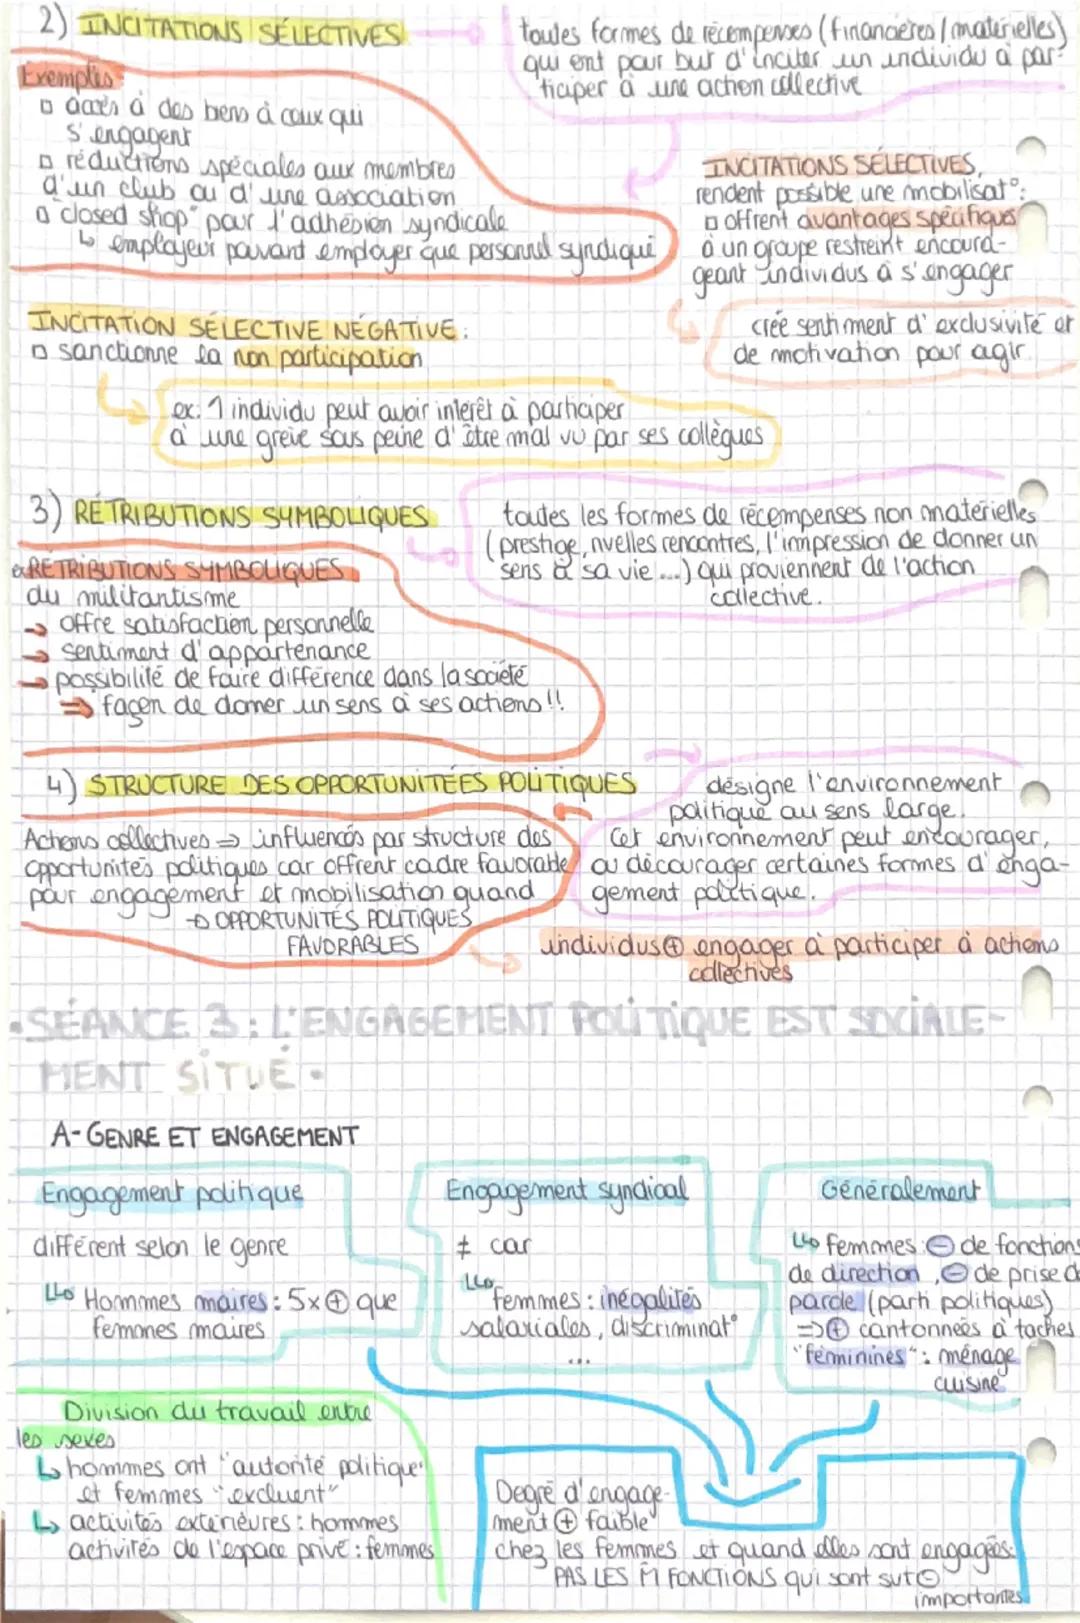 2) INCITATIONS SÉLECTIVES
toutes formes de récompenses (financières/matérielles)
qui ont pour but d'inciter un individu à par-
ticiper à une action collective
Exemples
▫ accès à des biens à ceux qui
s'engagent
▫ réductions spéciales aux membres
d'un club ou d'une association
▫ "closed shop" pour l'adhésion syndicale
↳ employeur pouvant employer que personnel syndiqué
INCITATIONS SÉLECTIVES,
rendent possible une mobilisat°:
▫ offrent avantages spécifiques
à un groupe restreint encoura-
geant individus à s'engager
crée sentiment d'exclusivité et
de motivation pour agir
INCITATION SÉLECTIVE NÉGATIVE:
▫ sanctionne la non participation
ex. 1 individu peut avoir intérêt à participer
à une grève sous peine d'être mal vu par ses collègues
3) RÉTRIBUTIONS SYMBOLIQUES
toutes les formes de récompenses non matérielles
(prestige, nvelles rencontres, l'impression de donner un
sens à sa vie ...) qui proviennent de l'action
collective.
RÉTRIBUTIONS SYMBOLIQUES
du militantisme
→ offre satisfaction personnelle
→ sentiment d'appartenance
→ possibilité de faire différence dans la société
⇒ façon de donner un sens à ses actions!!
4) STRUCTURE DES OPPORTUNITÉES POLITIQUES
désigne l'environnement
politique au sens large.
Cet environnement peut encourager,
ou décourager certaines formes d'enga-
gement politique.
Actions collectives ⇒ influencés par structure des
opportunités politiques car offrent cadre favorable
pour engagement et mobilisation quand
→ OPPORTUNITÉS POLITIQUES
FAVORABLES
individus ⊕ engager à participer à actions
collectives
•SÉANCE 3: L'ENGAGEMENT POLITIQUE EST SOCIALE-
MENT SITUÉ•
A- GENRE ET ENGAGEMENT
Engagement politique
différent selon le genre
↳ Hommes maires: 5x ⊕ que
femmes maires
Engagement syndical
≠ car
↳ femmes: inégalités
salariales, discriminat°
...
Généralement
↳ femmes: ⊖ de fonctions
de direction, ⊖ de prise de
parole (parti politiques)
⇒ ⊕ cantonnées à taches
"féminines": ménage
cuisine
Division du travail entre
les sexes
↳ hommes ont "autorité politique"
et femmes "excluent"
↳ activités extérieures: hommes
activités de l'espace privé: femmes
Degré d'engage-
ment ⊕ faible
chez les femmes et quand elles sont engagées:
PAS LES M̂ FONCTIONS qui sont svt ⊖
importantes